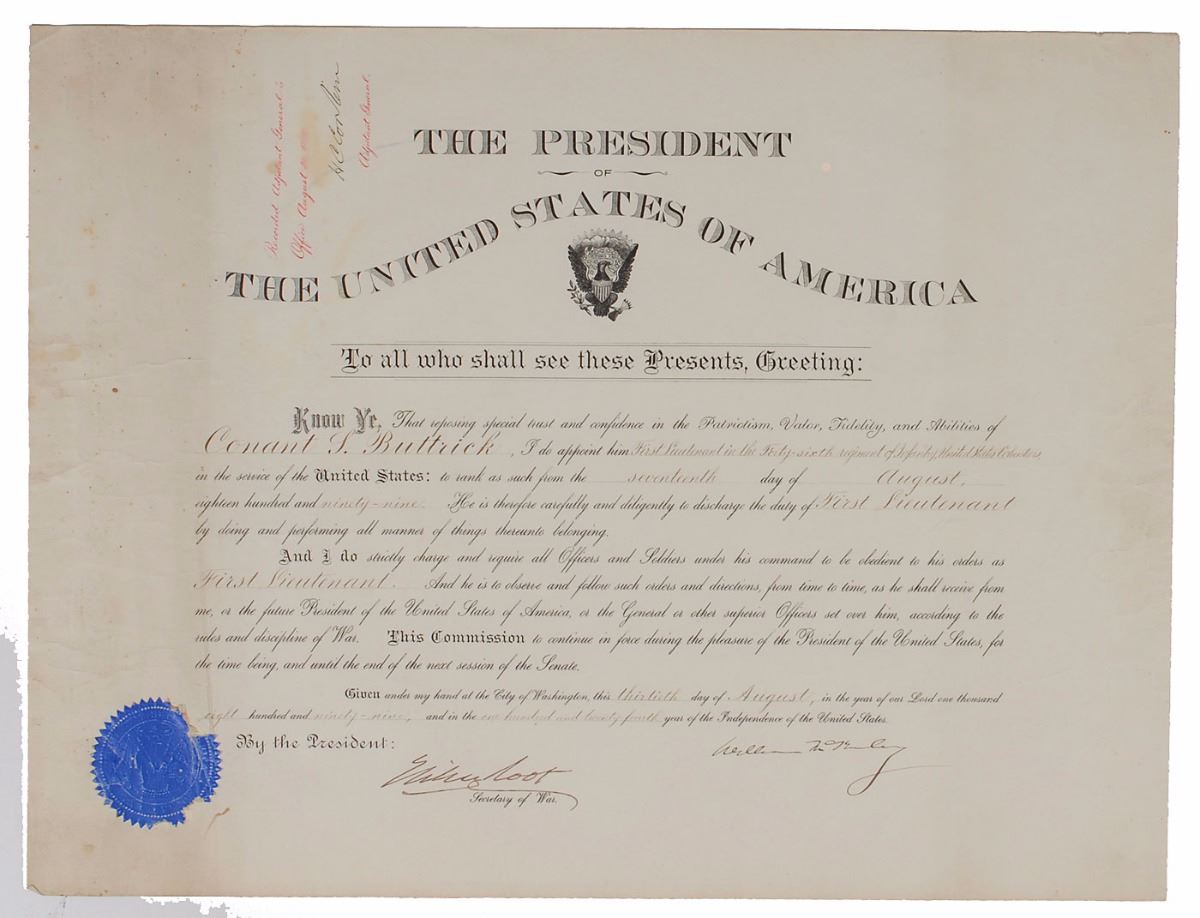 Recorded Adjutant General's
Office August
H C Corbin
Adjutant General.
THE PRESIDENT
OF
THE UNITED STATES OF AMERICA
To all who shall see these Presents, Greeting:
Know Ye, That reposing special trust and confidence in the Patriotism, Valor, Fidelity, and Abilities of
Conant S. Buttrick, I do appoint him First Lieutenant in the Forty-sixth regiment of Infantry, United States Volunteers,
in the service of the United States: to rank as such from the seventeenth day of August,
eighteen hundred and ninety-nine. He is therefore carefully and diligently to discharge the duty of First Lieutenant
by doing and performing all manner of things thereunto belonging.
And I do strictly charge and require all Officers and Soldiers under his command to be obedient to his orders as
First Lieutenant. And he is to observe and follow such orders and directions, from time to time, as he shall receive from
me, or the future President of the United States of America, or the General or other superior Officers set over him, according to the
rules and discipline of War. This Commission to continue in force during the pleasure of the President of the United States, for
the time being, and until the end of the next session of the Senate.
Given under my hand at the City of Washington, this thirtieth day of August, in the year of our Lord one thousand
eight hundred and ninety-nine, and in the one hundred and twenty-fourth year of the Independence of the United States.
By the President:
William McKinley
Elihu Root
Secretary of War.